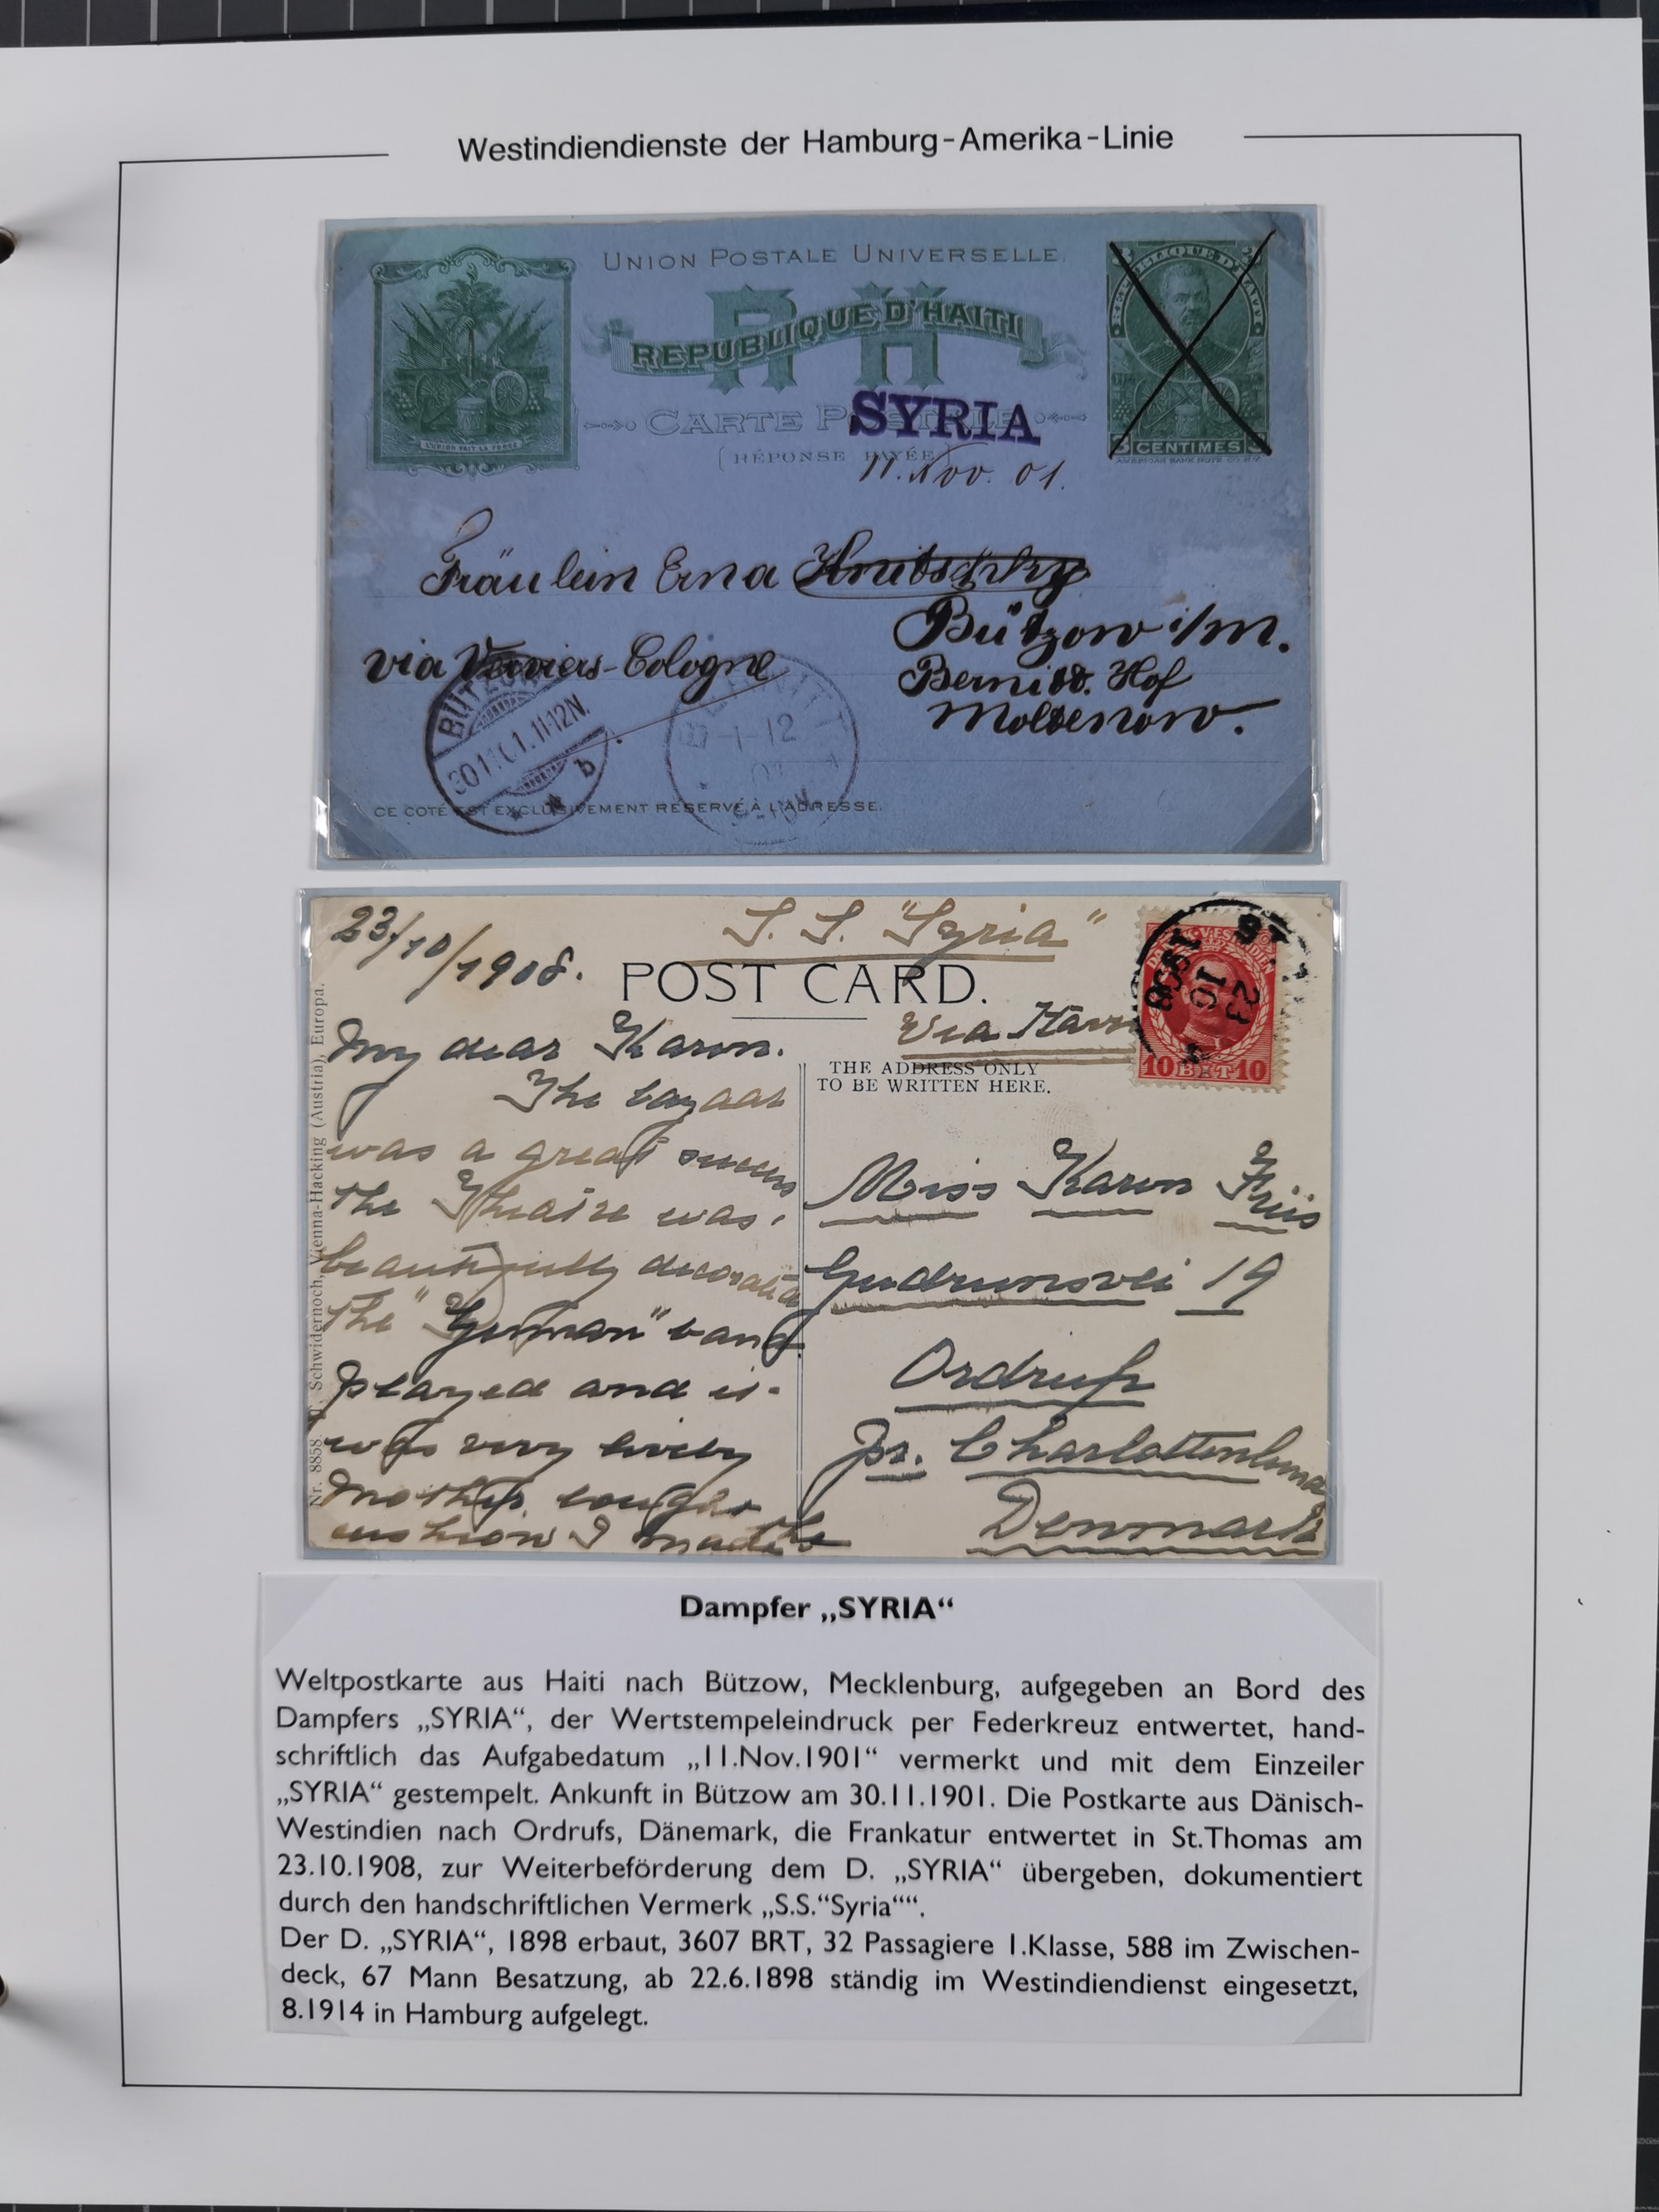 Westindiendienste der Hamburg-Amerika-Linie
UNION POSTALE UNIVERSELLE.
RH
REPUBLIQUE D'HAITI
CARTE POSTALE
SYRIA
(RÉPONSE PAYÉE)
11. Nov. 01.
L'UNION FAIT LA FORCE
3 CENTIMES 3
AMERICAN BANK NOTE CO. N.Y.
Fräulein Erna
Bützow i/M.
via Verviers-Cologne
Hof
BÜTZOW
30.11.01.11-12N.
b
CE COTÉ EST EXCLUSIVEMENT RESERVÉ À L'ADRESSE.
23/10/1908.
S. S. "Syria"
POST CARD.
Via Havre
THE ADDRESS ONLY
TO BE WRITTEN HERE.
10 BIT 10
23
10
1908
My dear Karen.
The bazaar
was a great success
the Theatre was
beautifully decorated
the "German" band
played and it
was very lively
Mother bought
cushion I made
the
Miss Karen Friis
Gudrunsvei 19
Ordrup
pr. Charlottenlund
Denmark
Nr. 8858. Schwidernoch, Vienna-Hacking (Austria), Europa.
Dampfer „SYRIA“
Weltpostkarte aus Haiti nach Bützow, Mecklenburg, aufgegeben an Bord des
Dampfers „SYRIA“, der Wertstempeleindruck per Federkreuz entwertet, hand-
schriftlich das Aufgabedatum „11.Nov.1901“ vermerkt und mit dem Einzeiler
„SYRIA“ gestempelt. Ankunft in Bützow am 30.11.1901. Die Postkarte aus Dänisch-
Westindien nach Ordrufs, Dänemark, die Frankatur entwertet in St.Thomas am
23.10.1908, zur Weiterbeförderung dem D. „SYRIA“ übergeben, dokumentiert
durch den handschriftlichen Vermerk „S.S.“Syria““.
Der D. „SYRIA“, 1898 erbaut, 3607 BRT, 32 Passagiere 1.Klasse, 588 im Zwischen-
deck, 67 Mann Besatzung, ab 22.6.1898 ständig im Westindiendienst eingesetzt,
8.1914 in Hamburg aufgelegt.